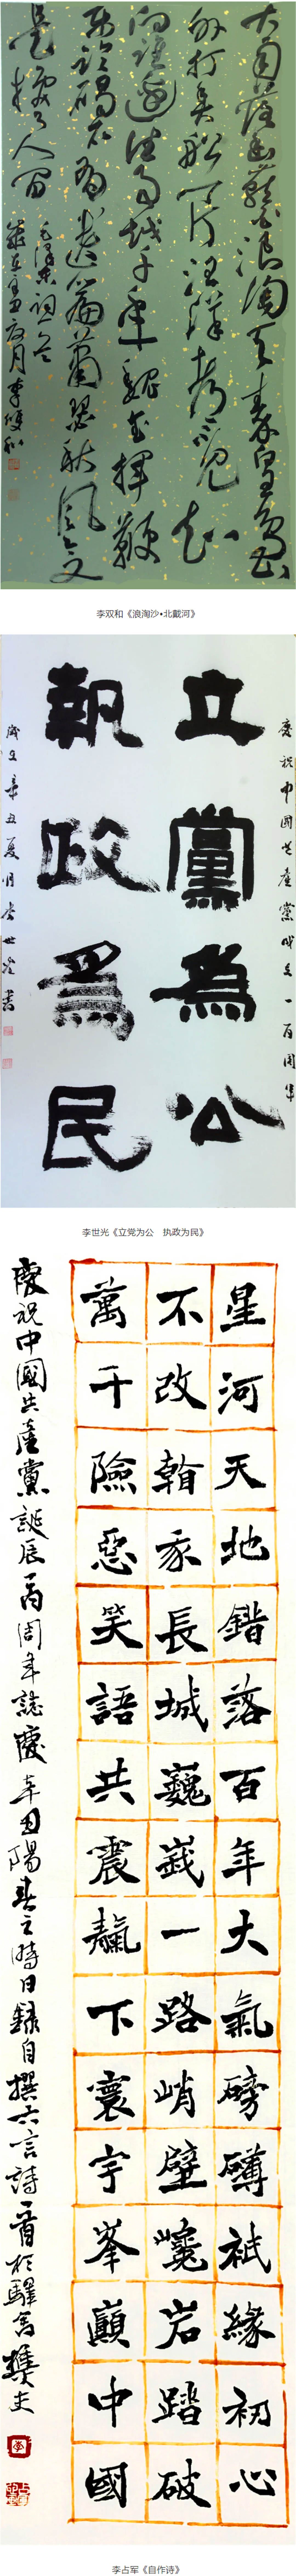 大雨落幽燕白浪滔天秦皇島
外打魚船一片汪洋都不見知
向誰邊往事越千年魏武揮鞭
東臨碣石有遺篇蕭瑟秋風今又
是換了人間
毛澤東詞一首
歲在辛丑夏月李雙和
李双和《浪淘沙•北戴河》
慶祝中國共產黨成立一百周年
立黨為公
執政為民
歲次辛丑夏月李世光書
李世光《立党为公　执政为民》
星河天地錯落百年大氣磅礴祇緣初心
不改翰長城巍峩一路峭壁巉岩踏破
萬千險惡笑語共震靝下寰宇峯巔中國
慶祝中國共產黨誕辰一百周年誌慶辛丑陽春之時日錄自撰六言詩一首於驛
李占军《自作诗》